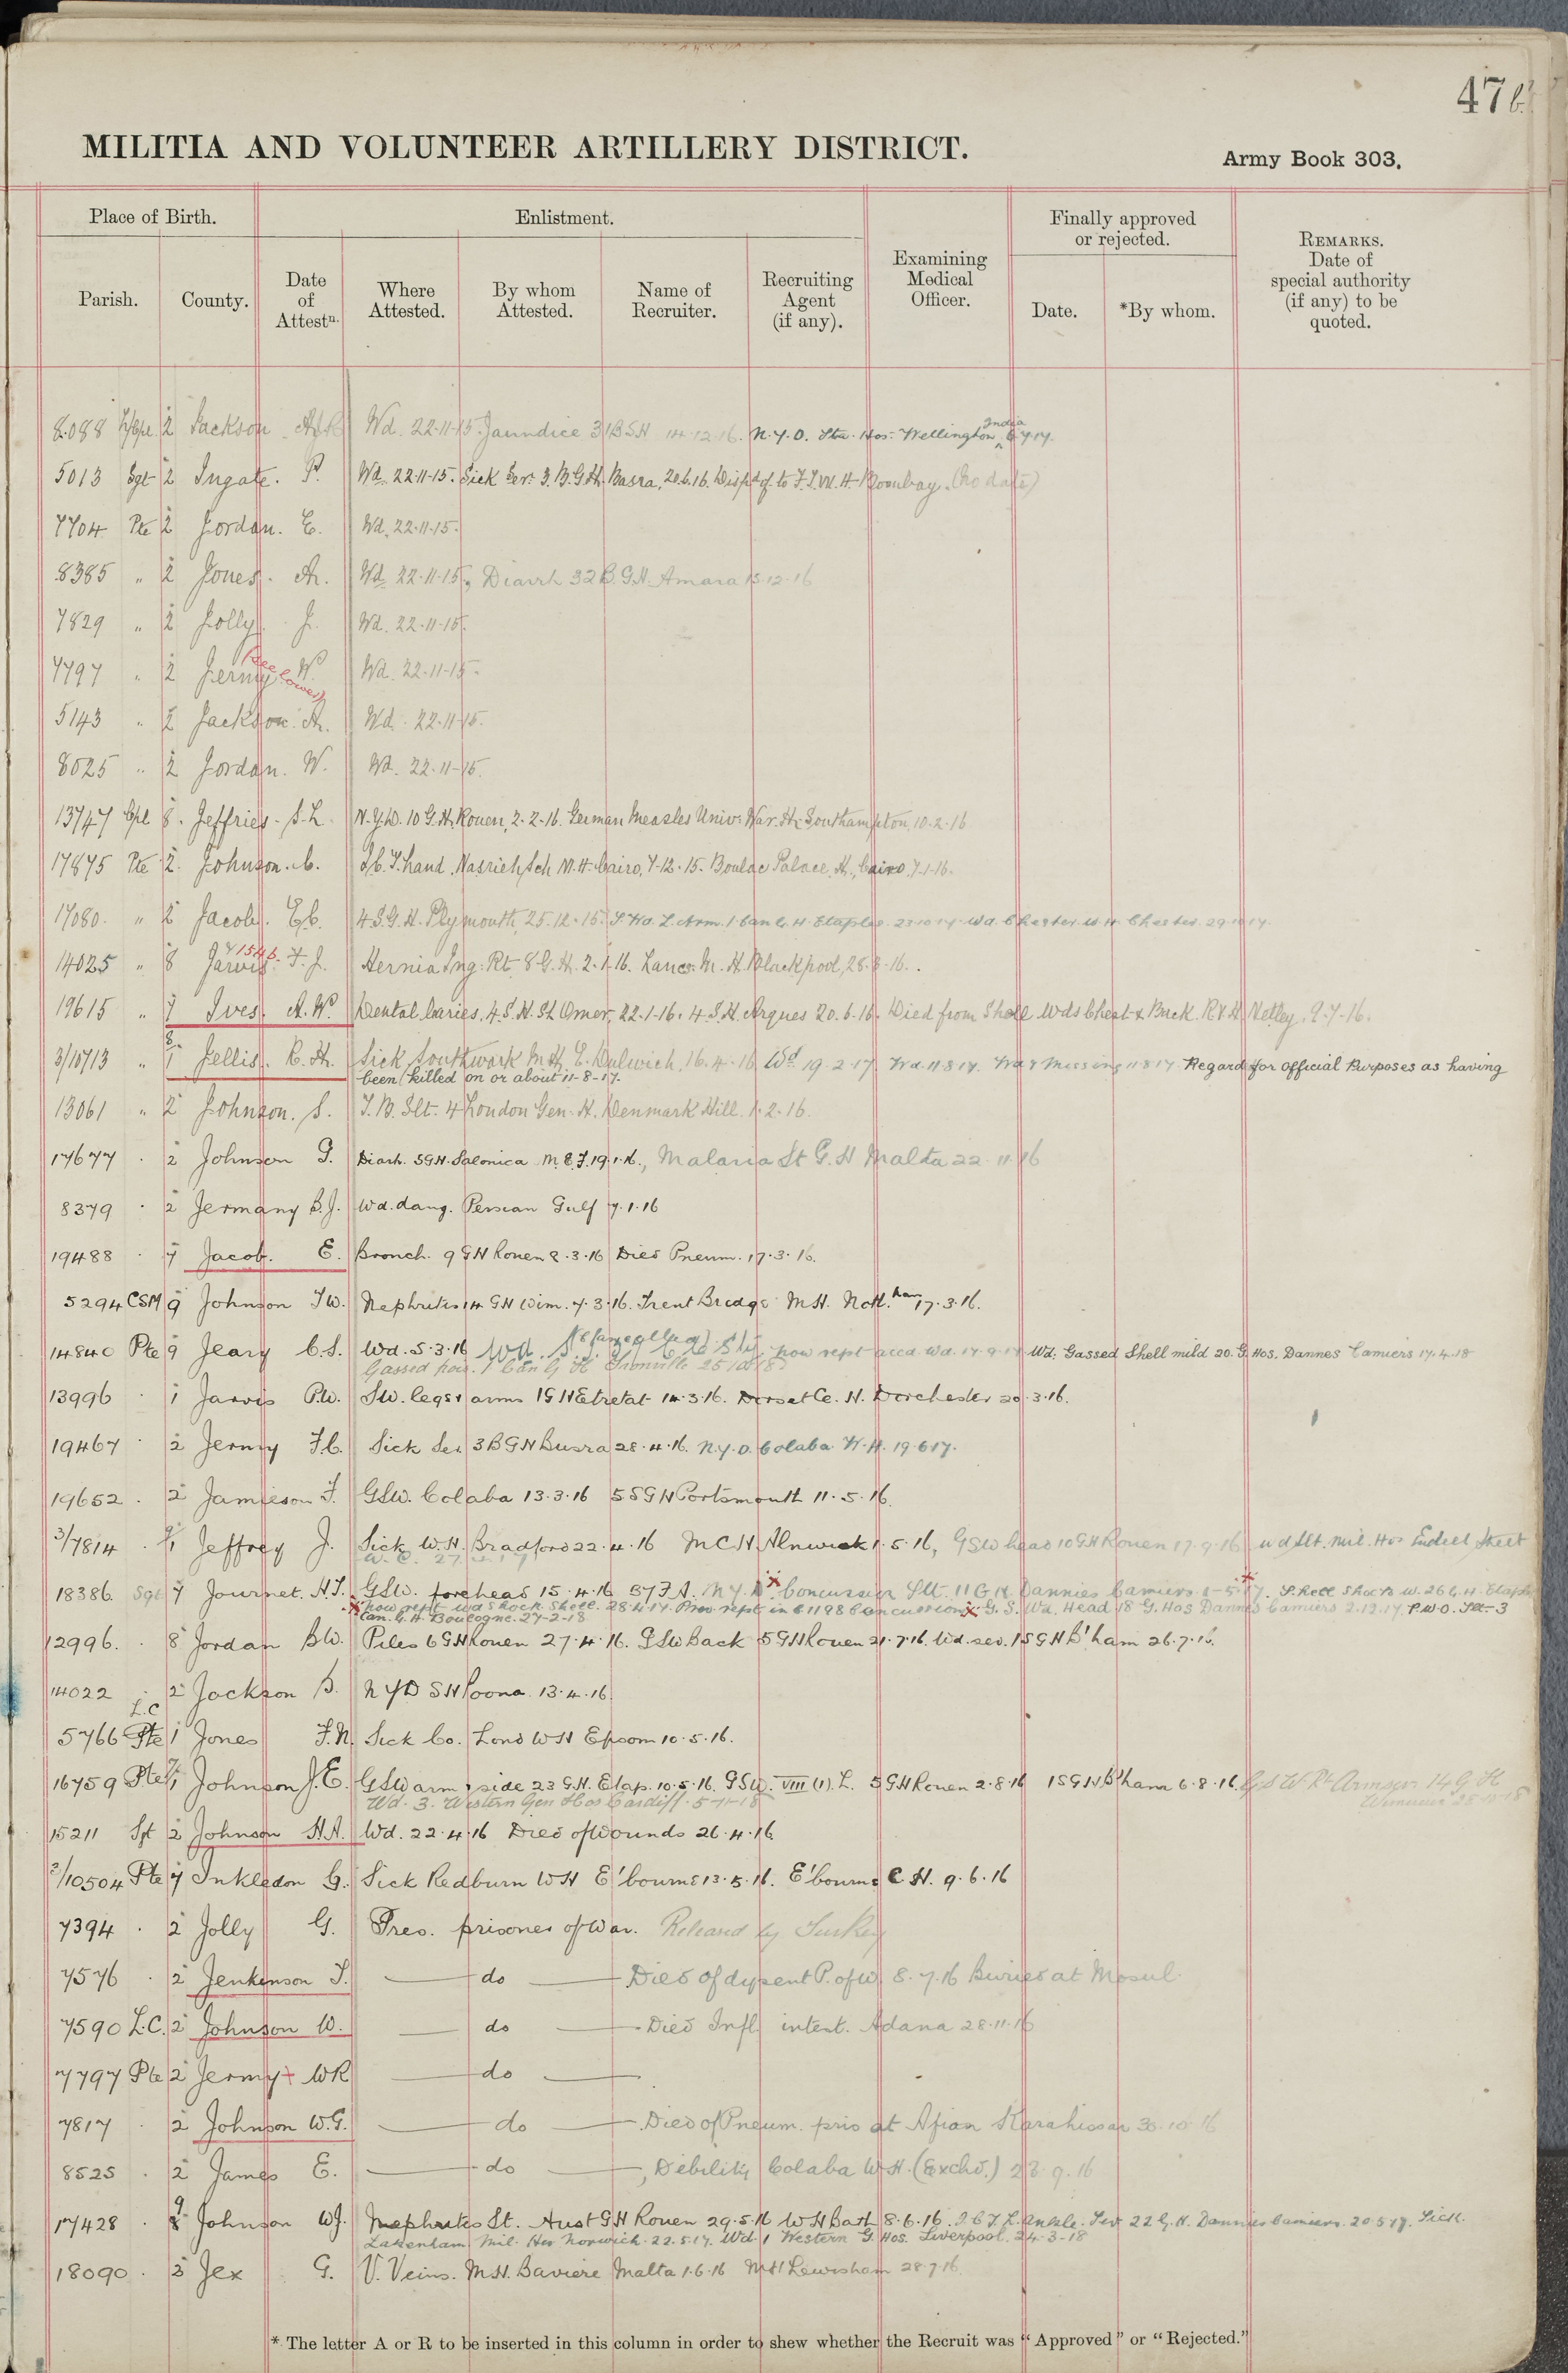 47b.
MILITIA AND VOLUNTEER ARTILLERY DISTRICT.
Army Book 303.
Place of Birth.
Enlistment.
Finally approved or rejected.
Parish.
County.
Date of Attestn.
Where Attested.
By whom Attested.
Name of Recruiter.
Recruiting Agent (if any).
Examining Medical Officer.
Date.
*By whom.
REMARKS. Date of special authority (if any) to be quoted.
India
8088 L/Cpl 2 Jackson Wd. 22-11-15. Jaundice 3 B.S.H 14.12.16. N.Y.D. Sta. Hos. Wellington
5013 Sgt 2 Ingate. P. Wd. 22-11-15. Sick Ser. 3. B.G.H. Basra, 20.6.16. to Bombay. (No date)
7704 Pte 2 Jordan. E. Wd. 22-11-15.
8385 " 2 Jones. Ar. Wd. 22-11-15, Diarrh 32 B.G.H. Amara 15-12-16
7829 " 2 Jolly. J. Wd. 22-11-15.
(See lower)
7797 " 2 Jermy W. Wd. 22-11-15.
5143 " 2 Jackson. Ar. Wd. 22-11-15.
8025 " 2 Jordan. W. Wd. 22-11-15.
13747 Cpl 8. Jeffries. S.L. N.Y.D. 10 G.H. Rouen, 2-2-16. German Measles Univ: War. H. Southampton, 10-2-16
17875 Pte 2. Johnson. C. hand. Nasrieh Sch M.H. Cairo, 7-12-15. Boulac Palace. H., Cairo 7-1-16.
17080 " 2 Jacob. E.C. 4 S.G.H. Plymouth, 25.12.15. S. Wd. L. Arm. 1 Can G. H. Etaples. 23-10-17. Wd. Chester W H Chester. 29-10-17.
14025 " 8 Jarvis. F. J. Hernia Ing. Rt. 8 G.H. 2-1-16. Lancs. M. H. Blackpool,
19615 " 7 Ives. A. W. Dental Caries, 4. S.H. St Omer, 22-1-16. 4. S.H. Arques 20.6.16. Died from Shell Wds Chest & Back. R.V.H. Netley. 9-7-16.
3/10713 " Jellis. R. H. Sick Southwark M.H. E. Dulwich, 16.4.16. Wd 19-2-17. Wd 11.8.17. Wd & Missing 11-8-17 Regard for official Purposes as having
been killed on or about 11-8-17.
13061 " 2 Johnson. S. 4 London Gen. H. Denmark Hill. 1.2.16.
17677 . 2 Johnson G. Diarh. 5GH. Salonica M.E.F. 19.1.16., Malaria St G. H Malta 22.11.16
8379 . 2 Jermany B.J. Wd. dang. Persian Gulf 7.1.16
19488 . 7 Jacob. E. Bronch. 9 GH Rouen 8.3.16 Died Pneum. 17.3.16.
5294 CSM 9 Johnson T.W. Nephritis 14 GH Wim. 7.3.16. Trent Bridge MH. Nott.ham 17.3.16.
14840 Pte 9 Jeary C.S. Wd. 5.3.16 now rept accd. Wd. 17-9-17 Wd: Gassed Shell mild 20. G. Hos. Dannes Camiers 17.4.18
13996 . 1 Jarvis P.W. S.W. legs & arms 1 G H Etretat 14.3.16. Dorset Co. H. Dorchester 20.3.16.
19467 . 2 Jermy F.C. Sick Ser 3 B G H Busra 28.4.16. N.Y.D. Colaba W.H. 19.6.17.
19652 . 2 Jamieson F. GSW. Colaba 13.3.16 5 S G H Portsmouth 11.5.16.
3/7814 . Jeffrey J. Sick W.H. Bradford 22.4.16 M C H Alnwick 1.5.16, GSW head 10 GH Rouen 17.9.16 wd slt. Mil. Hos Endell Street
18386 Sgt 7 Journet. H.J. GSW. forehead 15.4.16 57 F A. Concussion Slt. 11 G H Dannes Camiers Shell Shock W. 26 G. H Etaples
now rept wd Shock. Shell. 28.4.17. Prev rept in E 11298 Concussion G.S. Wd. Head 18 G. Hos Dannes Camiers 2.12.17. P.W.O.
Can. G.H. Boulogne. 27-2-18
12996. . 8 Jordan B.W. Piles 6 G H Rouen 27.4.16. GSW Back 5 G H Rouen 21.7.16. Wd. sev. 1 S G H B'ham 26.7.16.
14022 . 2 Jackson B. N Y D S H Poona. 13.4.16.
L.C
5766 Pte 1 Jones F.N. Sick Co. Lond WH Epsom 10.5.16.
16759 Pte Johnson J.E. GSW arm & side 23 G.H. Etap. 10.5.16. GSW. VIII (1). L. 5 G H Rouen 2.8.16 1 S G H B'ham 6.8.16. 14 G H
Wd. 3. Western Gen Hos Cardiff. 5-11-18
15211 Sgt 2 Johnson H.A. Wd. 22.4.16 Died of Wounds 26.4.16.
3/10504 Pte 7 Inkledon G. Sick Redburn WH E'bourne 13.5.16. E'bourne C.H. 9.6.16
7394 . 2 Jolly G. Pres. prisoner of War. Released by Turkey
7576 . 2 Jenkinson T. — do — Died of dysent P. of W. 8.7.16 Buried at Mosul.
7590 L.C. 2 Johnson W. — do — Died Infl intest. Adana 28.11.16
7797 Pte 2 Jermy + WR — do —
7817 . 2 Johnson W.G. — do — Died of Pneum. pris at Afion Karahissar 30.10.16
8525 . 2 James E. — do —, Debility Colaba W.H. (Exchd.) 28.9.16
17428 . 9 Johnson W.J. Nephrites St. Aust G H Rouen 29.5.16 W H Bath 8.6.16. L. Ankle. Sev 22 G. H. Dannes Camiers. 20.5.17. Sick.
Lakenham Mil. Hos Norwich. 22.5.17. Wd. 1 Western G. Hos. Liverpool. 24-3-18
18090 . Jex G. V. Veins. M.H. Baviere Malta 1.6.16 MH Lewisham 28.7.16.
* The letter A or R to be inserted in this column in order to shew whether the Recruit was "Approved" or "Rejected."